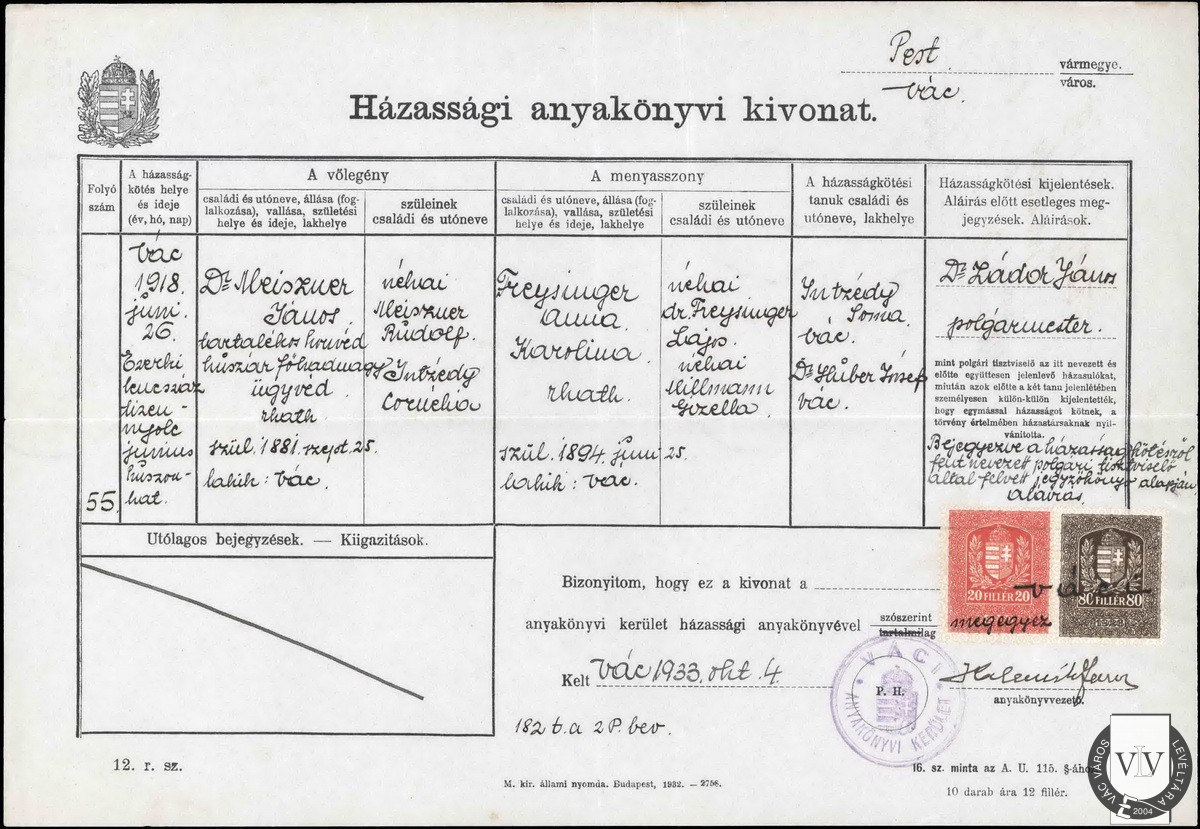 Pest vármegye.
Vác. város.
Házassági anyakönyvi kivonat.
Folyó szám
A házasság-
kötés helye
és ideje
(év, hó, nap)
A vőlegény
családi és utóneve, állása (fog-
lalkozása), vallása, születési
helye és ideje, lakhelye
szüleinek
családi és utóneve
A menyasszony
családi és utóneve, állása (fog-
lalkozása), vallása, születési
helye és ideje, lakhelye
szüleinek
családi és utóneve
A házasságkötési
tanuk családi és
utóneve, lakhelye
Házasságkötési kijelentések.
Aláírás előtt esetleges meg-
jegyzések. Aláírások.
55.
Vác
1918.
juni.
26.
Ezerki
lencszáz
tizen-
nyolc
junius
húszon-
hat.
Dr Meiszner
János
tartalékos honvéd
huszár főhadnagy
ügyvéd
rkath
szül. 1881. szept. 25.
lakik: Vác.
néhai
Meiszner
Rudolf.
Intzédy
Cornelia
Freysinger
Anna
Karolina
rkath.
szül. 1894. juni 25.
lakik: Vác.
néhai
dr. Freysinger
Lajos.
néhai
Millmann
Gizella.
Intzédy
Soma
Vác.
Dr Huber József
Vác.
Dr Zádor János
polgármester.
mint polgári tisztviselő az itt nevezett és
előtte együttesen jelenlevő házasulókat,
miután azok előtte a két tanu jelenlétében
személyesen külön-külön kijelentették,
hogy egymással házasságot kötnek, a
törvény értelmében házastársaknak nyil-
vánította.
Bejegyezve a házasság kötésről
fent nevezett polgári tisztviselő
által felvett jegyzőkönyv alapján
aláírás
Utólagos bejegyzések. — Kiigazitások.
Bizonyitom, hogy ez a kivonat a váci
anyakönyvi kerület házassági anyakönyvével szószerint megegyez
tartalmilag
20 FILLÉR 20
80 FILLÉR 80
Kelt Vác 1933. okt. 4.
P. H.
VÁCI ANYAKÖNYVI KERÜLET
anyakönyvvezető.
182 t. a 2 P. bev.
12. r. sz.
M. kir. állami nyomda. Budapest, 1932. — 2758.
16. sz. minta az A. U. 115. §-áho
10 darab ára 12 fillér.
VÁC VÁROS LEVÉLTÁRA
VLV
2004